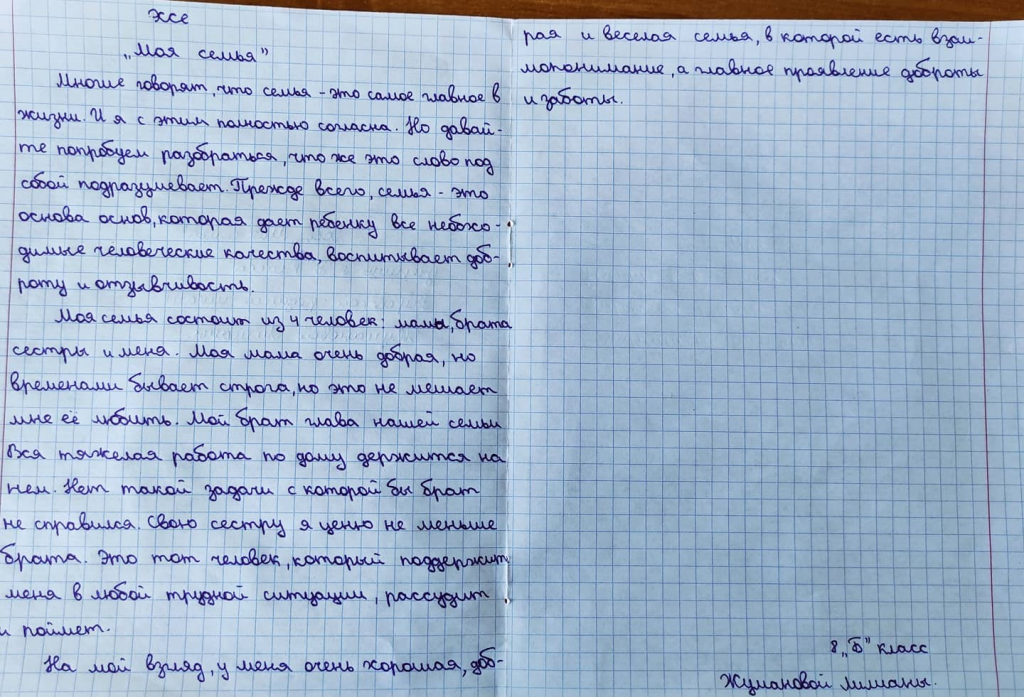 эссе
„Моя семья"
Многие говорят, что семья - это самое главное в
жизни. И я с этим полностью согласна. Но давай-
те попробуем разобраться, что же это слово под
собой подразумевает. Прежде всего, семья - это
основа основ, которая дает ребенку все необхо-
димые человеческие качества, воспитывает доб-
роту и отзывчивость.
Моя семья состоит из 4 человек: мамы, брата
сестры и меня. Моя мама очень добрая, но
временами бывает строга, но это не мешает
мне её любить. Мой брат глава нашей семьи
Вся тяжелая работа по дому держится на
нем. Нет такой задачи с которой бы брат
не справился. Свою сестру я ценю не меньше
брата. Это тот человек, который поддержит
меня в любой трудной ситуации, рассудит
и поймет.
На мой взгляд, у меня очень хорошая, доб-
рая и веселая семья, в которой есть взаи-
мопонимание, а главное проявление доброты
и заботы.
8 „Б" класс
Жумановой Лилианы.